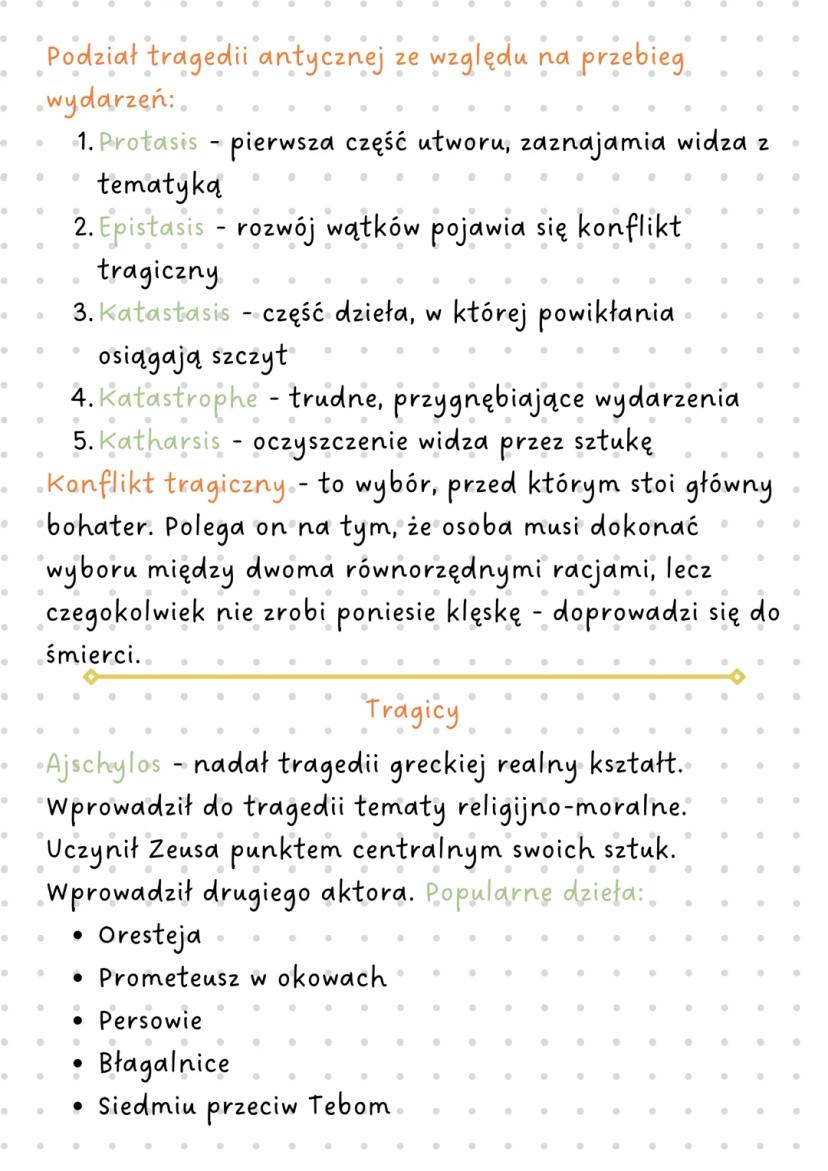 Podział tragedii antycznej ze względu na przebieg
wydarzeń:
1. Protasis - pierwsza część utworu, zaznajamia widza z
tematyką
2. Epistasis - rozwój wątków pojawia się konflikt
tragiczny
3. Katastasis - część dzieła, w której powikłania
osiągają szczyt
4. Katastrophe - trudne, przygnębiające wydarzenia
5. Katharsis - oczyszczenie widza przez sztukę
Konflikt tragiczny - to wybór, przed którym stoi główny
bohater. Polega on na tym, że osoba musi dokonać
wyboru między dwoma równorzędnymi racjami, lecz
czegokolwiek nie zrobi poniesie klęskę - doprowadzi się do
śmierci.
Tragicy
Ajschylos - nadał tragedii greckiej realny kształt.
Wprowadził do tragedii tematy religijno-moralne.
Uczynił Zeusa punktem centralnym swoich sztuk.
Wprowadził drugiego aktora. Popularne dzieła:
• Oresteja
• Prometeusz w okowach
• Persowie
• Błagalnice
• Siedmiu przeciw Tebom